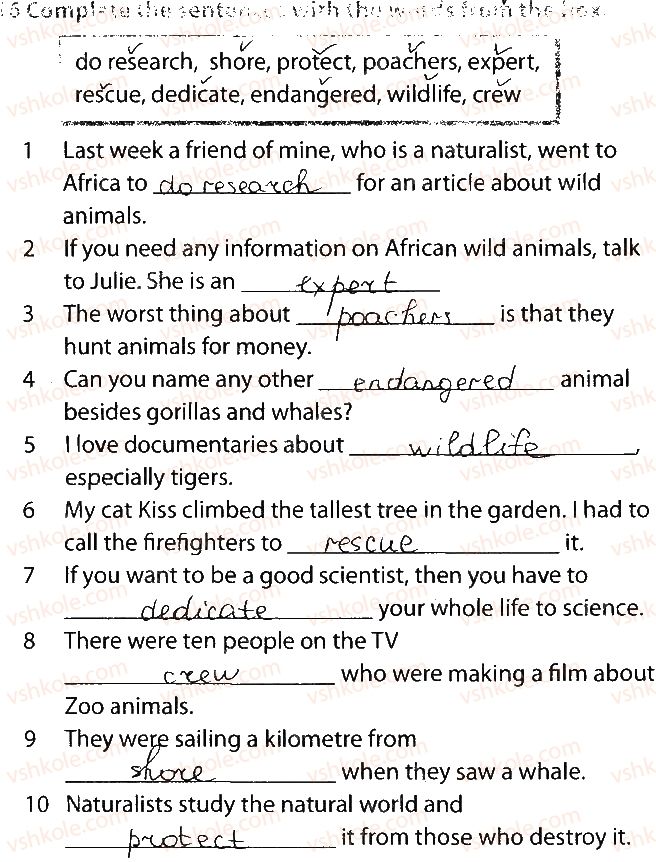 6 Complete the sentences with the words from the box.
do research, shore, protect, poachers, expert,
rescue, dedicate, endangered, wildlife, crew
1 Last week a friend of mine, who is a naturalist, went to
Africa to do research for an article about wild
animals.
2 If you need any information on African wild animals, talk
to Julie. She is an expert
3 The worst thing about poachers is that they
hunt animals for money.
4 Can you name any other endangered animal
besides gorillas and whales?
5 I love documentaries about wildlife,
especially tigers.
6 My cat Kiss climbed the tallest tree in the garden. I had to
call the firefighters to rescue it.
7 If you want to be a good scientist, then you have to
dedicate your whole life to science.
8 There were ten people on the TV
crew who were making a film about
Zoo animals.
9 They were sailing a kilometre from
shore when they saw a whale.
10 Naturalists study the natural world and
protect it from those who destroy it.